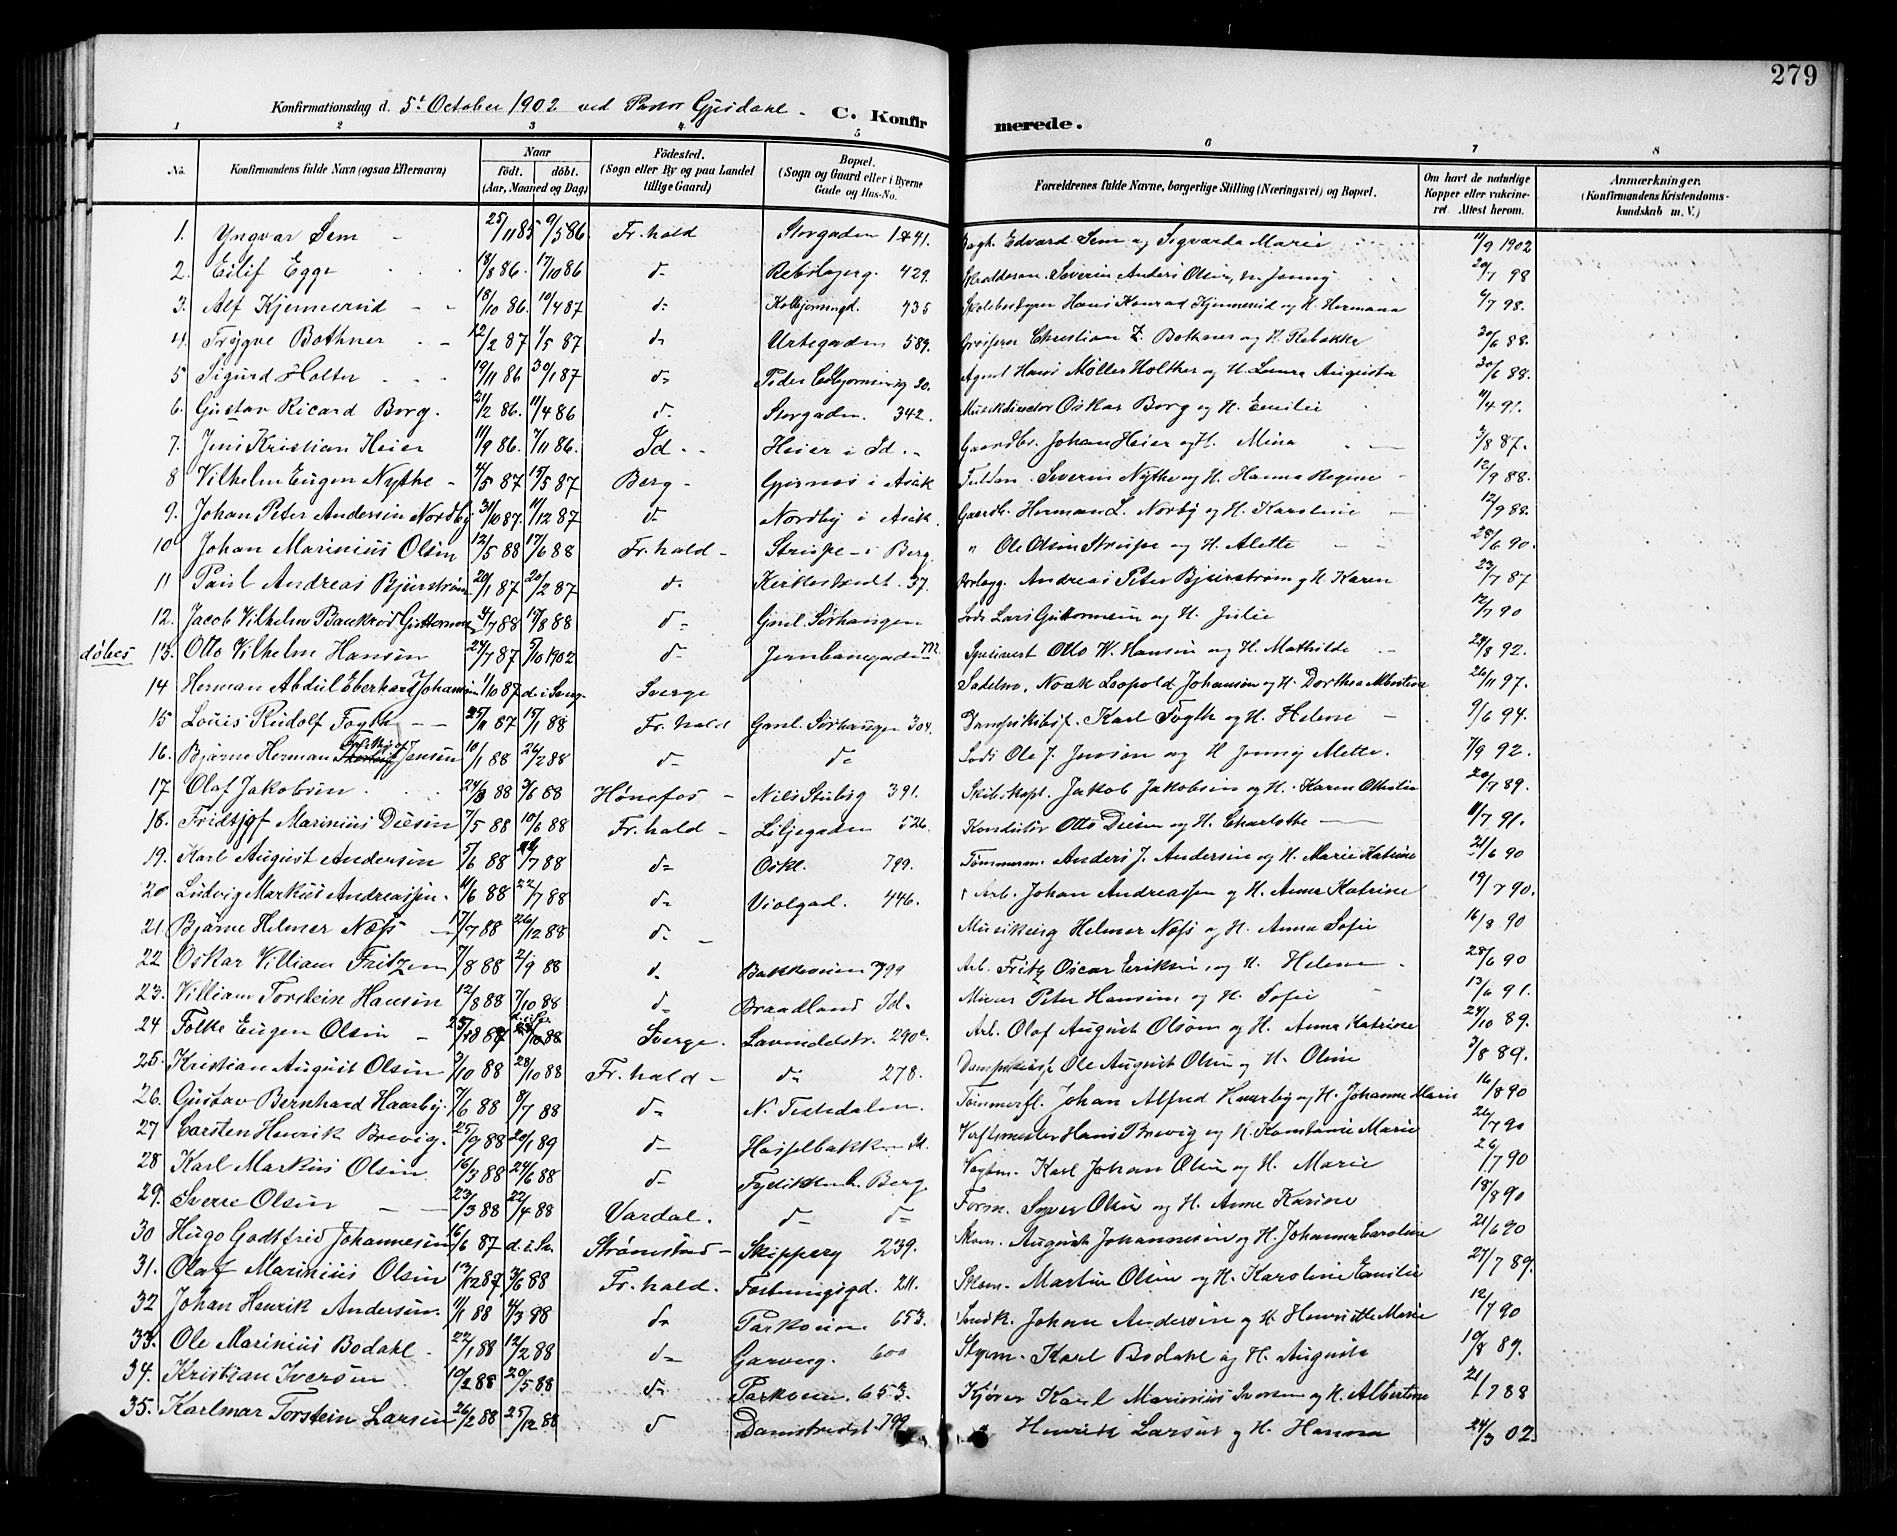 279
Konfirmationsdag d. 5t October 1902 ved Pastor Gjesdahl. C. Konfirmerede.
1 2 3 4 5 6 7 8
No. Konfirmandens fulde Navn (ogsaa Efternavn) Naar født. døbt. (Aar, Maaned og Dag) Fødested. (Sogn eller By og paa Landet tillige Gaard) Bopæl. (Sogn og Gaard eller i Byerne Gade og Hus-No. Forældrenes fulde Navne, borgerlige Stilling (Næringsvei) og Bopæl. Om havt de naturlige Kopper eller vakcineret. Attest herom. Anmærkninger. (Konfirmandens Kristendomskundskab m. V.)
1. Yngvar Sem 25/11 85 9/5 86. Fr.hald Storgaden Edvard Sem og Sigvarda Marie 11/9 1902
2. Eilif Egge 18/8 86. 17/10 86 d- 429. Severin Anders Olsen, Jenny 20/7 98
3. Alf Kjennerud 18/10 86. 10/4 87 d- Kolbjørnsgd. 435 Skolebestyrer Hans Konrad Kjennerud og H. Hermana 6/7 98.
4. Trygve Bothner 12/2 87 1/5 87 d- 589. Christian Z. Bothner og H. Rebekka 20/6 88.
5 Sigurd Holter 19/11 86 30/1 87 d- Peder Colbjørnsensg 20. Agent Hans Möller Holther og H. Laura Augusta 30/6 88.
6. Gustav Ricard Borg. 21/2 86. 11/4 86 d- Storgaden. 342. Musikdirector Oskar Borg og H. Emilie 11/4 91.
7. Jens Kristian Heier 11/9 86. 7/11 86. Id - Heier i Id - Gaardbr. Johan Heier og H. Mina 3/8 87.
8 Vilhelm Eugen Nythe 4/5 87 15/5 87 Berg - i Asak Severin Nythe og H. Hanna Regine 12/9 88.
9. Johan Peter Andersen Nordby 31/10 87. 11/12 87 d- Nordby i Asak. Gaardb. Herman L. Norby og H. Karoline 12/9 88.
10 Johan Marinius Olsen 12/5 88 17/6 88 Fr.hald - Strupe - i Berg. " Ole Olsen Strupe og H. Alette 28/6 90.
11 Paul Andreas Bjurstrøm 20/1 87 20/2 87 d. 37. Andreas Peter Bjurstrøm og H. Karen 23/7 87
12. Jacob Vilhelm Guttormsen 4/7 88 19/8 88 d- Gml. Sørhaugen Lods Lars Guttormsen og H. Julie 12/7 90
døbes 13. Otto Vilhelm Hansen 24/7 87 5/10 1902 d- Jernbanegaden 772 Otto W. Hansen og H. Mathilde 29/8 92.
14 Herman Abdul Eberhard Johansen 1/10 87 d. i Sverg. Sverge Sadelm. Noak Leopold Johansen og H. Dorthea Albertine 26/11 97.
15 Louis Rudolf Fogth 25/11 87 15/1 88 Fr.hald Gml. Sørhaugen 304. Karl Fogth og H. Helene 9/6 94.
16. Bjarne Herman Jensen 10/1 88 26/2 88 d- d- Lods Ole J. Jensen og H Jenny Mette. 7/9 92.
17 Olaf Jakobsen 24/3 88 3/6 88 Hønefos - Nils Stubsg 391. Skibskapt. Jakob Jakobsen og H. Karen Othilie 20/7 89.
18. Fridtjof Marinius Diesen 7/5 88 10/6 88 Fr.hald - Liljegaden 526. Konduktør Otto Diesen og H. Charlotte 11/7 91.
19. Karl August Andersen 5/6 88 /7 88 d- Oskl. 799. Tømmerm. Anders J. Andersen og H. Marie Katrine 21/6 90
20 Ludvig Markus Andreassen. 11/6 88 22/7 88 d- Violgad. 446. Arb. Johan Andreassen og H. Anna Katrine 19/7 90.
21 Bjarne Helmer Næss 17/7 88 26/12 88 d- Helmer Næss og H. Anna Sofie 16/8 90
22 Oskar William Fritzen 7/8 88 2/9 88 d. Bakkeveien 799 Arb. Fritz Oscar Eriksen, og H. Helene 28/6 90
23. Villiam Torstein Hansen 12/8 88 7/10 88 d- Braadland Id. Murer Peter Hansen, og H. Sofie 13/6 91.
24 Folke Eugen Olsen Sverge. 290c. Arb. Olaf August Olsøn og H. Anna Katrine 24/10 89.
25. Kristian August Olsen 3/10 88 28/10 88 Fr.hald - d- 278. Ole August Olsen og H. Oline 3/8 89.
26. Gustav Bernhard Haarby. 7/6 88 8/7 88 d- N. Tistedalen. Tømmerfl. Johan Alfred Haarby og H. Johanne Marie 16/8 90
27 Carsten Henrik Brevig. 25/9 88 20/1 89 d- Hasselbakken Verftsmester Hans Brevig og H. Konstanse Marie 26/7 90
28 Karl Markus Olsen 16/3 88 24/6 88 d- Berg Vogtm. Karl Johan Olsen og H. Marie 26/7 90
29. Sverre Olsen 23/3 88 22/4 88 Vardal. d- d- Form. Syver Olsen og H. Anne Karine 18/8 90
30 Hugo Godtfrid Johannesen 16/6 87 d. i Sv. Strømstad - Skipperg 239. Skom. August Johannesen og H. Johanna Caroline 21/6 90
31. Olaf Marinius Olsen 13/12 87 3/6 88 Fr.hald. Fæstningsgd. 211. Skom. Martin Olsen og H. Karoline Emilie 27/7 89.
32 Johan Henrik Andersen. 11/1 88 4/3 88 d- Parkveien 653. Snedk. Johan Andersen og H. Henriette Marie 12/7 90
33. Ole Marinius Bodahl 22/1 88 12/2 88 d- Garverg. 600 Karl Bodahl og H. Augusta 10/8 89.
34. Kristian Iversen 19/2 88 20/5 88 d- Parkveien. 653. Kjører Karl Marinius Iversen og H. Albertine 21/7 88
35. Karlmar Torstein Larsen 26/2 88 25/12 88 d Damstrædet 799 " Henrik Larsen og H. Hanna 24/3 02.